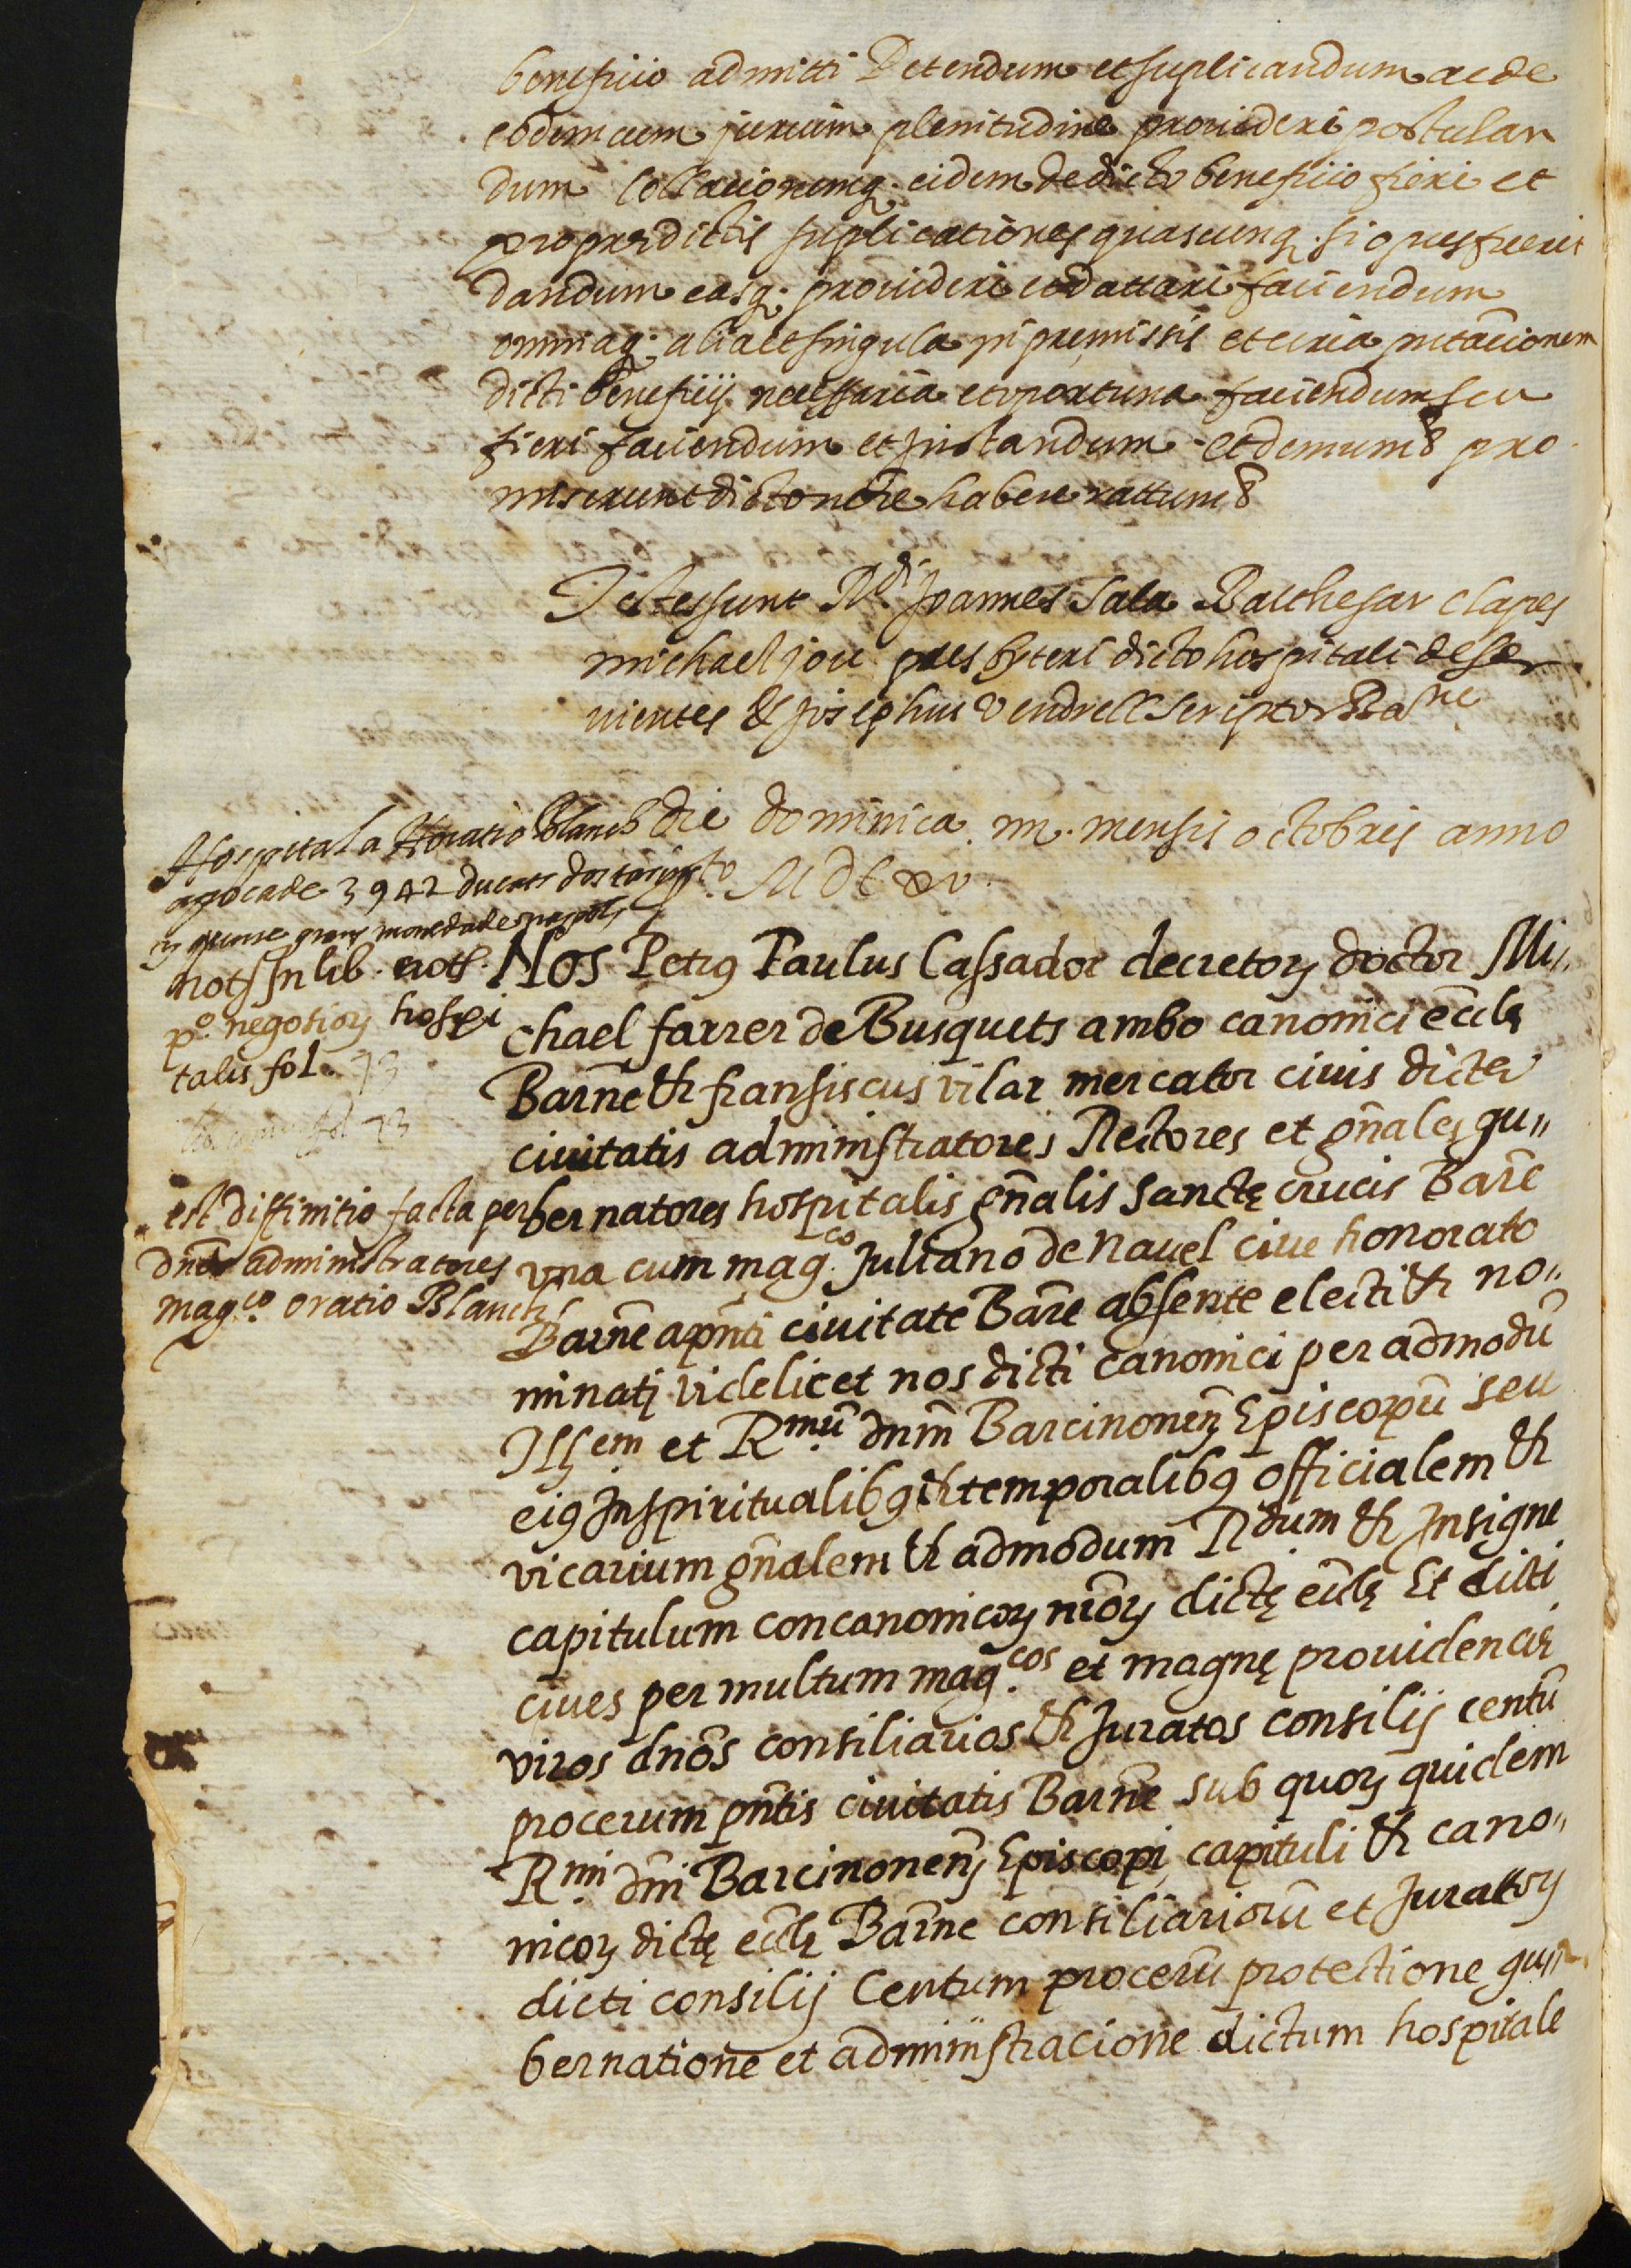 benefitio admitti Petendum et suplicandum ac de
eodem cum jurium plenitudine prouideri postulan
dum Collationemq. eidem de dicto benefitio fieri et
pro predictis suplicationes quascunq. si opus fuerit
dandum easq. prouideri et dattari faciendum
omniaq. alia et singula in premissis et circa
dicti benefitij necessaria et oportuna faciendum seu
fieri faciendum et instandum et demum &. pro
miserunt dicto nõe habere rattum &.
Testes sunt Rdi. Joannes Sala Balthesar Clapes
michael jou presbyteri dicto hospitali deser
uientes & Josephus Vendrell scriptor Barne
die dominica iiii. mensis octobris anno
MDCXV.
Hospital a Horatio Blanch
apoca de 3942 ducats
y quinse grans moneda de napols
not. in lib.
po. negotiorẓ hospi
talis fol. 73
73
est diffinitio facta per
dnõs administratores
magco. oratio Blanch
Nos Petrꝰ Paulus Cassador decretorẓ doctor Mi„
chael farrer de Busquets ambo canonici ecclẽ
Barñe & fransiscus vilar mercator ciuis dictę
ciuitatis administratores Rectores et gñales gu„
bernatores hospitalis gñalis sanctę crucis Barñe
vna cum magco. Juliano de Nauel ciue honorato
Barñe a pñti ciuitate Barñe absente electi & no„
minatj videlicet nos dicti canonici per admodũ
Illem et Rmũ dnm̃ Barcinonenẓ Episcopũ seu
eiꝰ Jn spiritualibꝰ & temporalibꝰ officialem &
vicarium gñalem & admodum Rdum & Jnsigne
capitulum concanonicorẓ nr̃orẓ dictę ecclę Et dicti
ciues per multum magcos. et magnę prouidencię
viros dnõs consiliarios & Juratos consilij centũ
procerum pñtis ciuitatis Barñe sub quorẓ quidem
Rmi dñi Barcinonenẓ Episcopi, capituli & cano„
nicorẓ dictę ecclę Barñe consiliariorũ et Juratorẓ
dicti consilij Centum procerũ protectione gu„
bernatione et administracione dictum hospitale